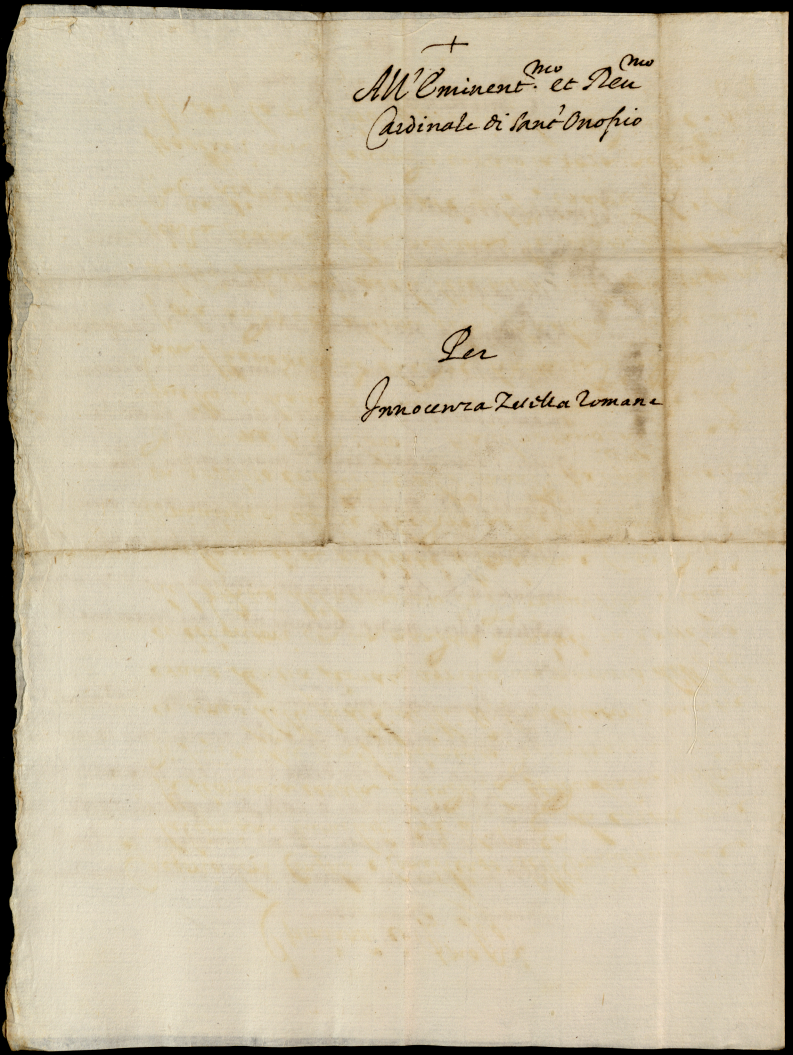 All' Eminent.mo et Reu.mo
Cardinale di Sant' Onofrio
Per
Innocenza Romana